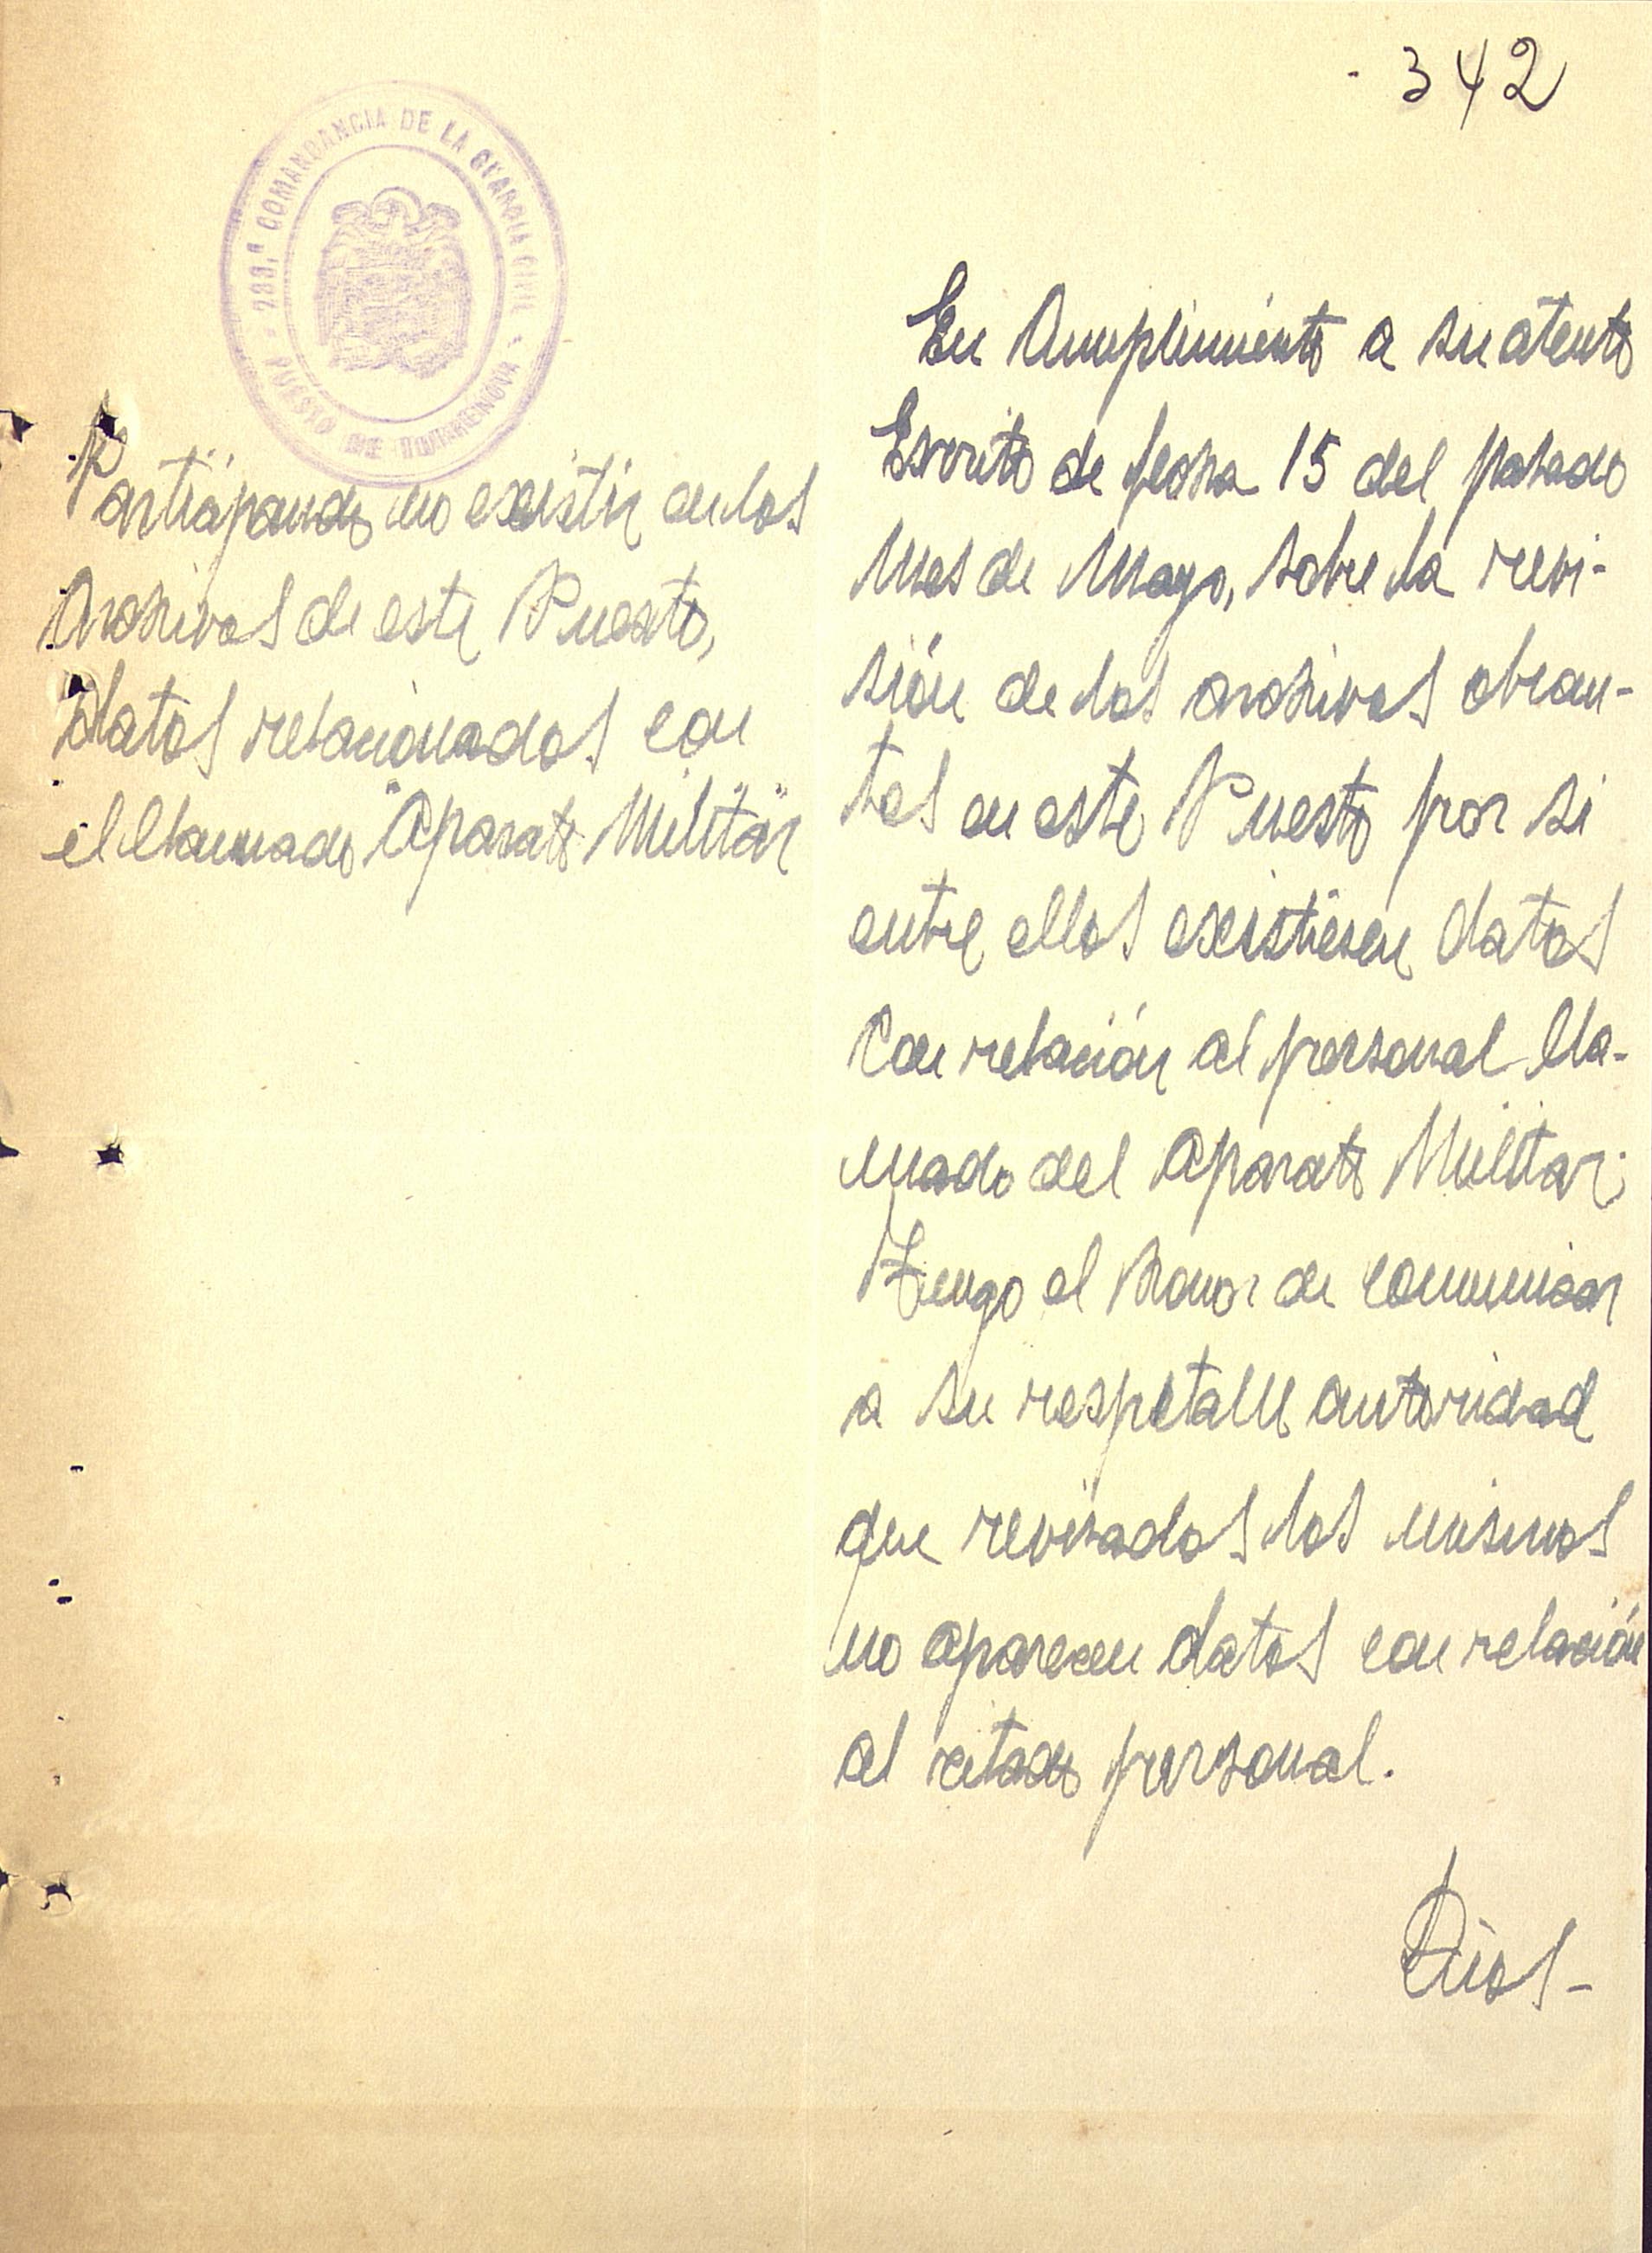 342
COMANDANCIA DE LA GUARDIA CIVIL
PUESTO DE
Participando no existir en los
Archivos de este Puesto,
datos relacionados con
el llamado "Aparato Militar"
En Cumplimiento a su atento
Escrito de fecha 15 del pasado
mes de Mayo, sobre la revi-
sión de los archivos obran-
tes en este Puesto por si
entre ellos existiesen datos
Con relación al personal lla-
mado del Aparato Militar;
Tengo el Honor de comunicar
a su respetable autoridad
que revisados los mismos
no aparecen datos con relación
al citado personal.
Dios-